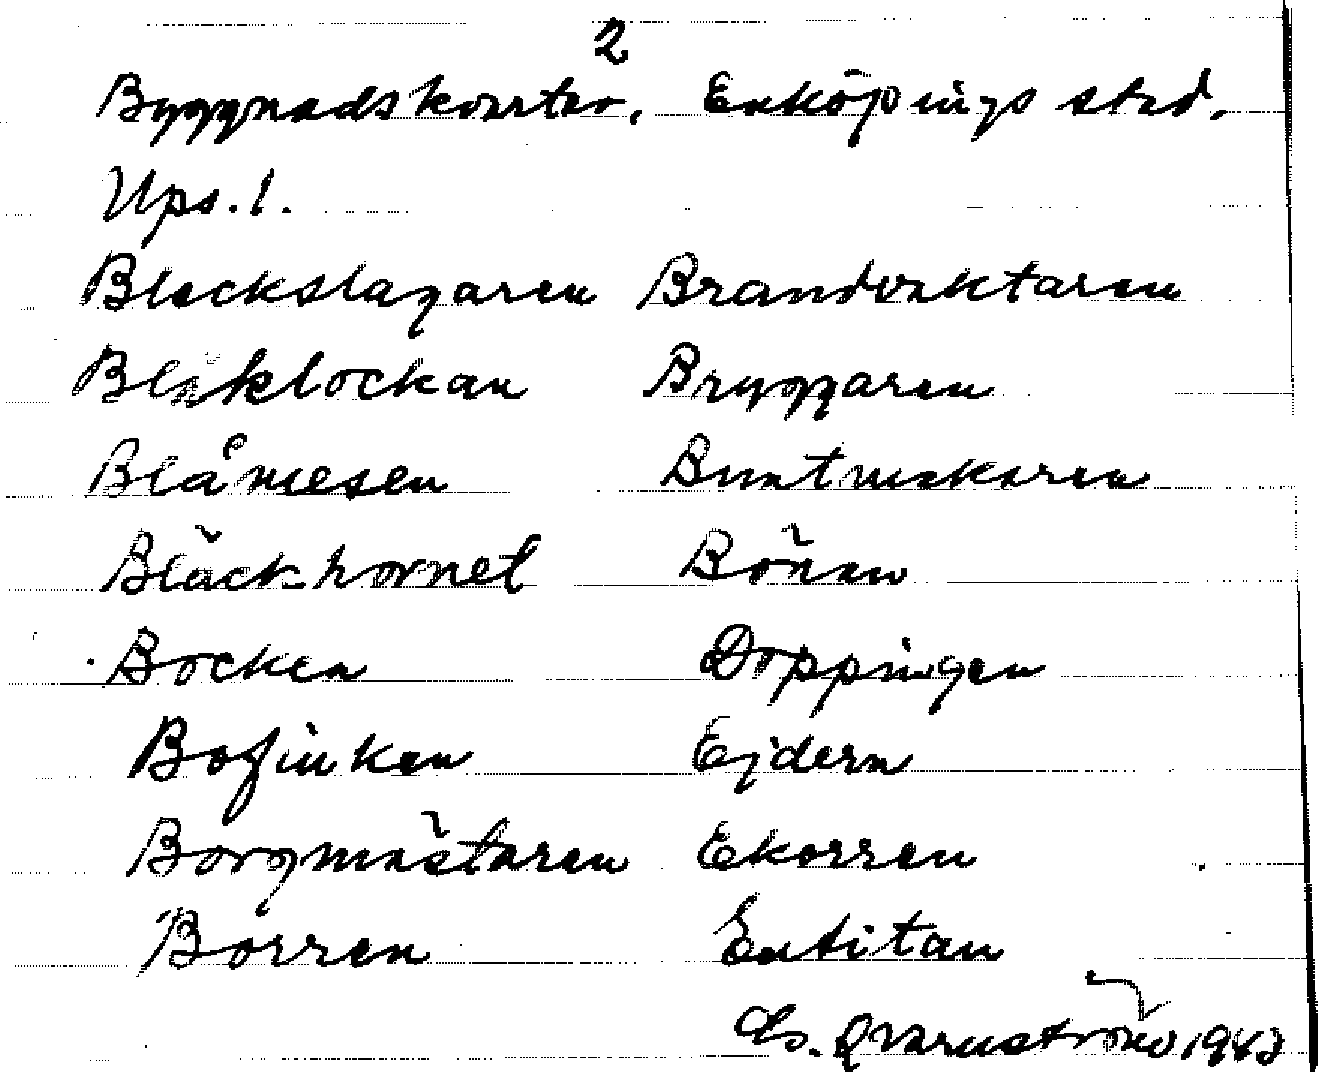 2
Byggnadskvarter. Enköpings stad.
Ups. l.
Bleckslagaren Brandvaktaren
Blåklockan Bryggaren
Blåmesen Buntmakaren
Bläckhornet Bönan
Bocken Doppingen
Bofinken Ejdern
Borgmästaren Ekorren
Borren Entitan
Qvarnström